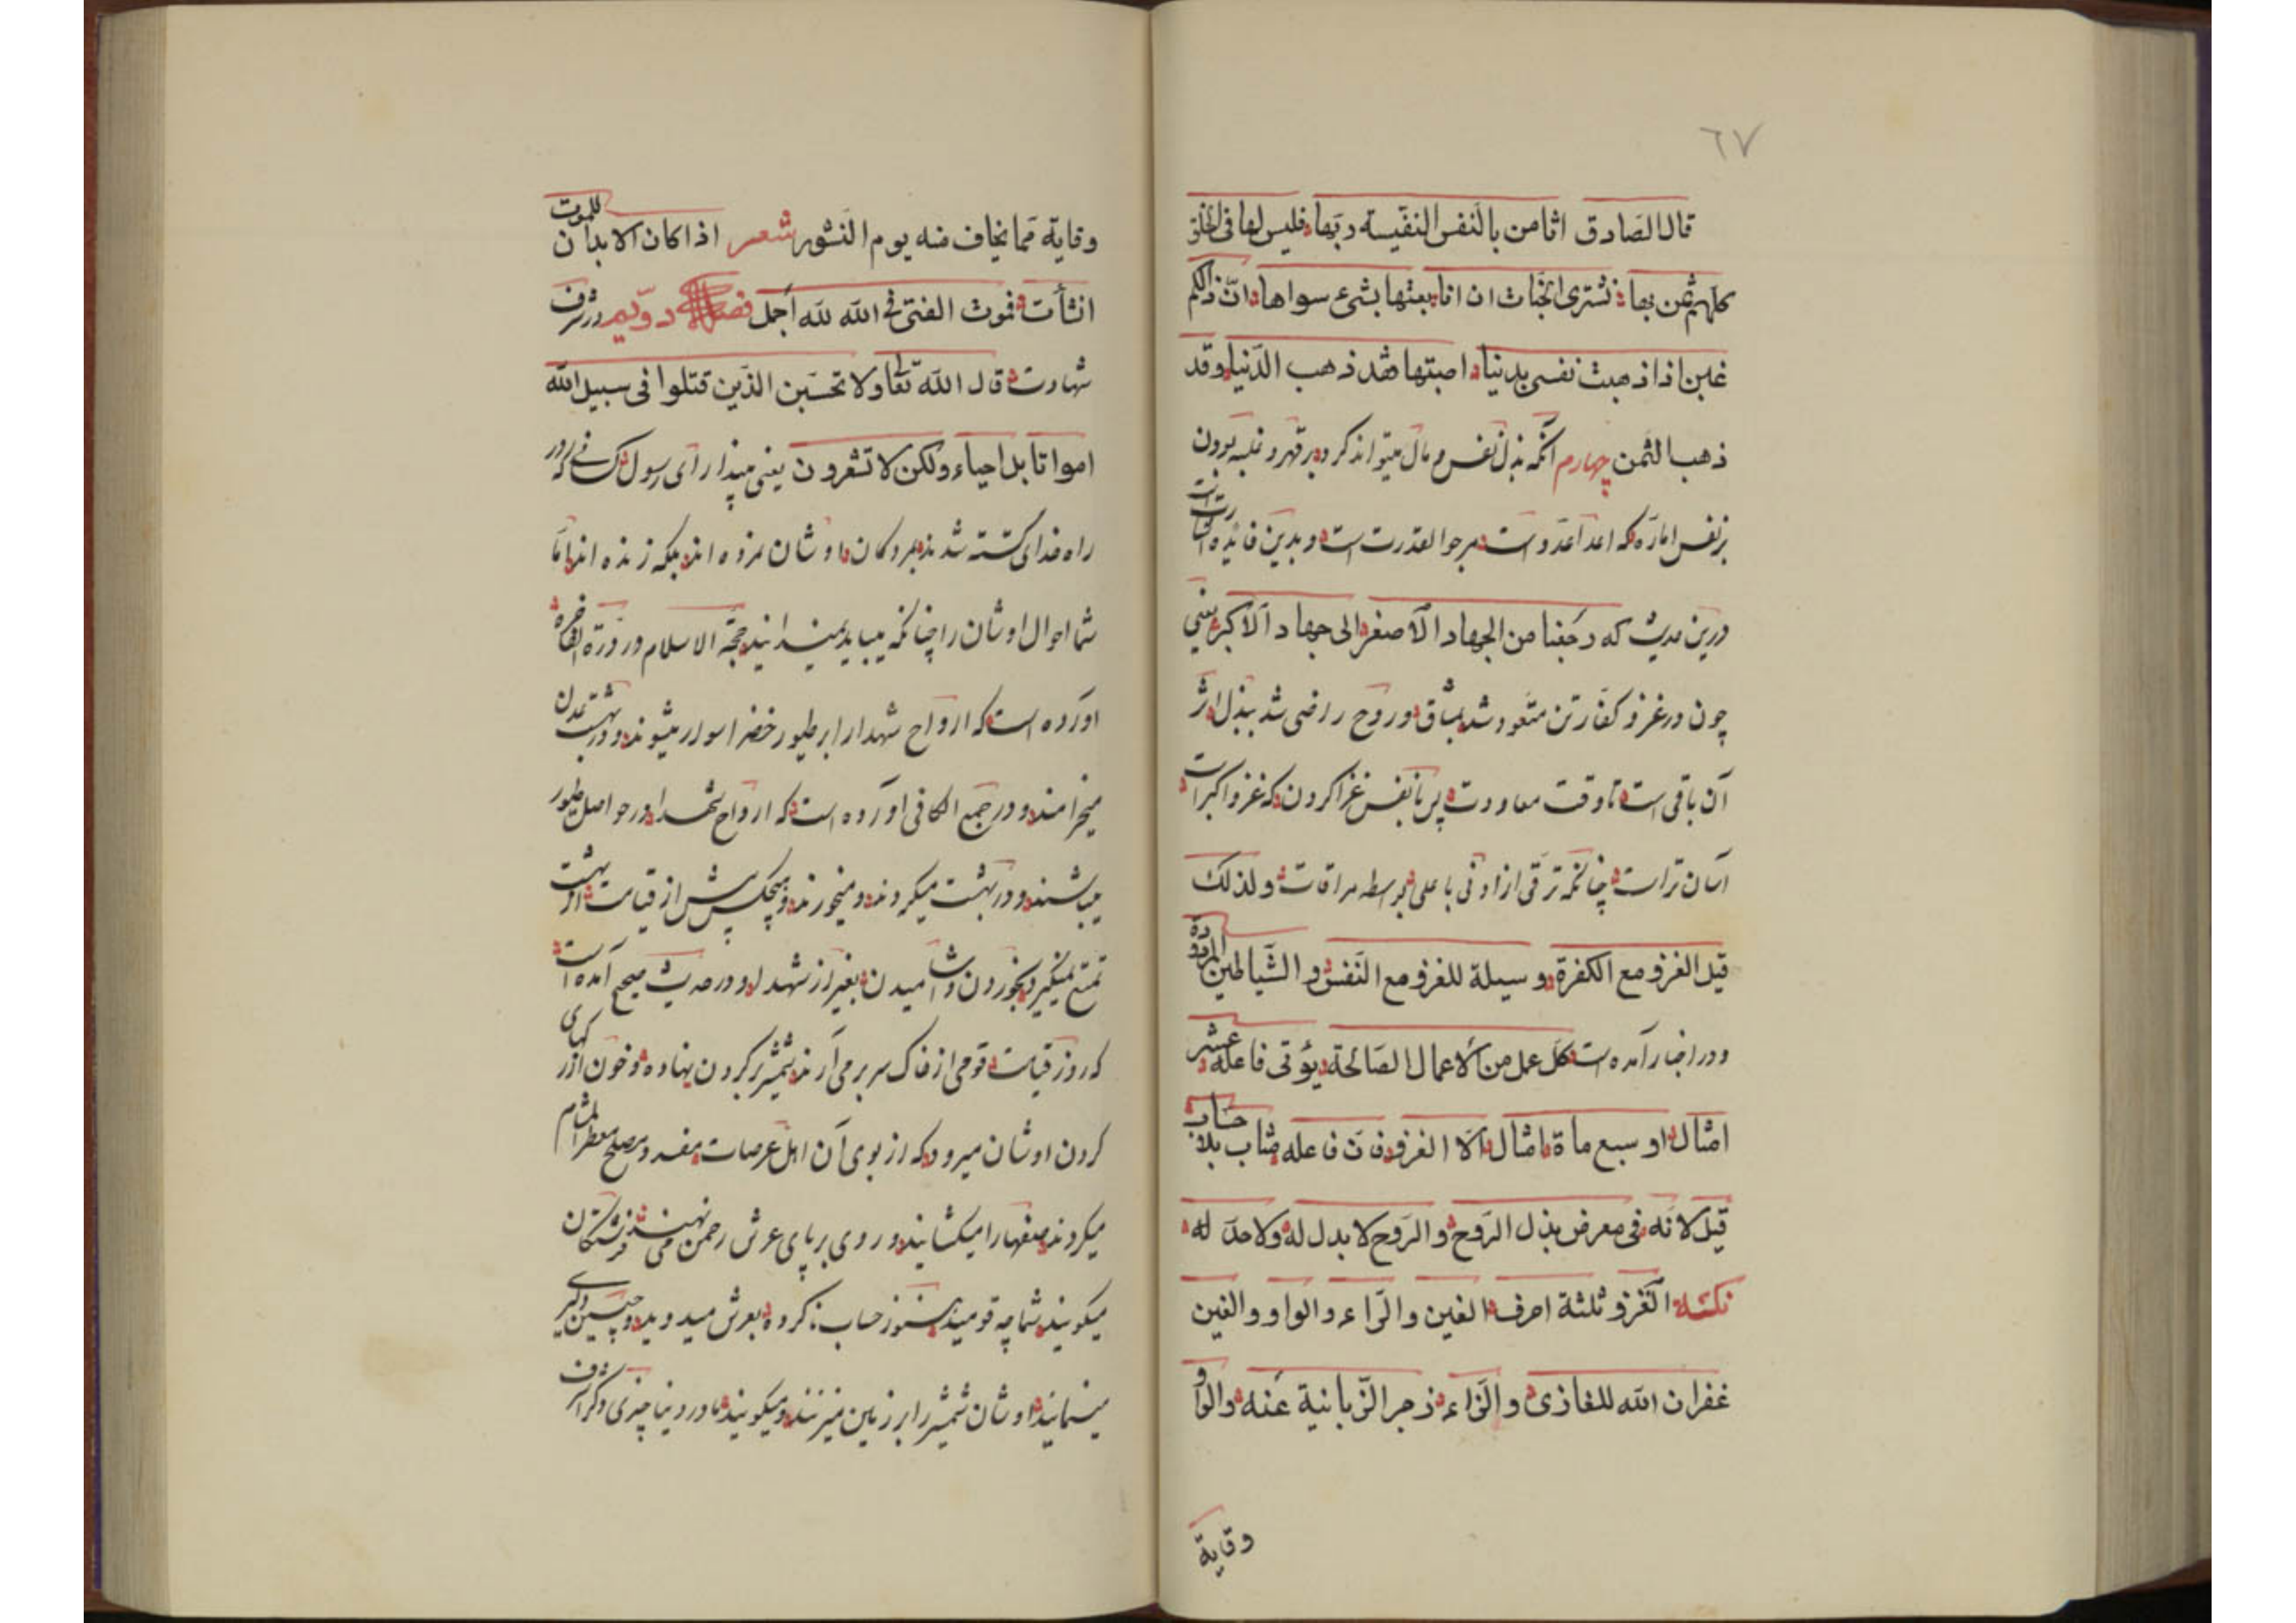 ٦٧
قال الصادق اثامن بالنفس النفیسه ربها فلیس لها فی الخلق
کلهم ثمن بها نشتری الجنات ان انا بعتها بشیء سواها ان ذالکم
غبن اذا ذهبت نفسی بدنیا اصبتها فقد ذهب الدنیا وقد
ذهب الثمن چهارم آنکه بذل نفس و مال میتواند کرد و بر قهر و غلبه بردن
بر نفس اماره که اعدا عدوست مرجو القدرت است و بدین فائده اشارت است
درین حدیث که رجعنا من الجهاد الاصغر الی جهاد الاکبر یعنی
چون در غزو کفار تن متعود شد بمشاق و روح راضی شد ببذل اثر
آن باقی است تا وقت معاودت پس با نفس غزا کردن که غزو اکبر است
آسان تر است چنانکه ترقی از ادنی با علی بواسطه مراقات ولذلک
قیل الغزو مع الکفرة وسیلة للغزو مع النفس و الشیاطین المردودة
و در اخبار آمده است کل عمل من الاعمال الصالحة یؤتی فاعله عشر
امثال او سبع ماة امثال الا الغزو فان فاعله یثاب بلا حساب
قیل لانه فی معرض بذل الروح و الروح لا بدل له ولا حد له
نکته الغزو ثلثة احرف الغین والزاء والواو والغین
غفران الله للغازی والزاء زجر الزبانیة عنه والواو
وقایة
وقایة مما یخاف منه یوم النشور شعر اذا کان الابدان للموت
انشأت فموت الفتی فی الله لله اجمل فصل دویم در شرف
شهادت قال الله تعا ولا تحسبن الذین قتلوا فی سبیل الله
امواتا بل احیاء ولکن لا تشعرون یعنی مپندار ای رسول کسانی که در
راه خدای کشته شدند مردگان اوشان نمرده اند بلکه زنده اند اما
شما احوال اوشان را چنانکه میباید نمیدانید حجة الاسلام در درة الفاخره
آورده است که ارواح شهدا را بر طیور خضر اسوار میشوند و در بهشت عدن
میخرامند و در جمع الکافی آورده است که ارواح شهدا در حواصل طیور
میباشند و در بهشت میگردند و میخورند و هیچکس پیش از قیامت از بهشت
تمتع نمیگیرد بخوردن و آشامیدن بغیر از شهدا و در حدیث صحیح آمده است
که روز قیامت قومی از خاک سر برمی آرند شمشیر بر گردن نهاده و خون از رگهای
گردن اوشان میرود که از بوی آن اهل عرصات مفسد و مصلح معطر المشام
میگردند صفها را میکشایند و روی بر پای عرش رحمن می نهند فرشتکان
میگویند شما چه قومید هنوز حساب ناکرده بعرش میدوید و چنین دلیری
مینمایید اوشان شمشیر را بر زمین میزنند و میگویند ما در دنیا چیزی دگر اشرف